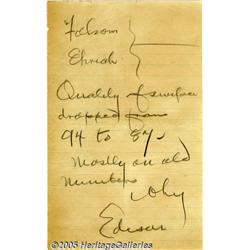 Folsom
Ehrich
Quality of surface
dropped from
94 to 87-
Mostly on old
numbers
Why
Edison
© 2005 HeritageGalleries